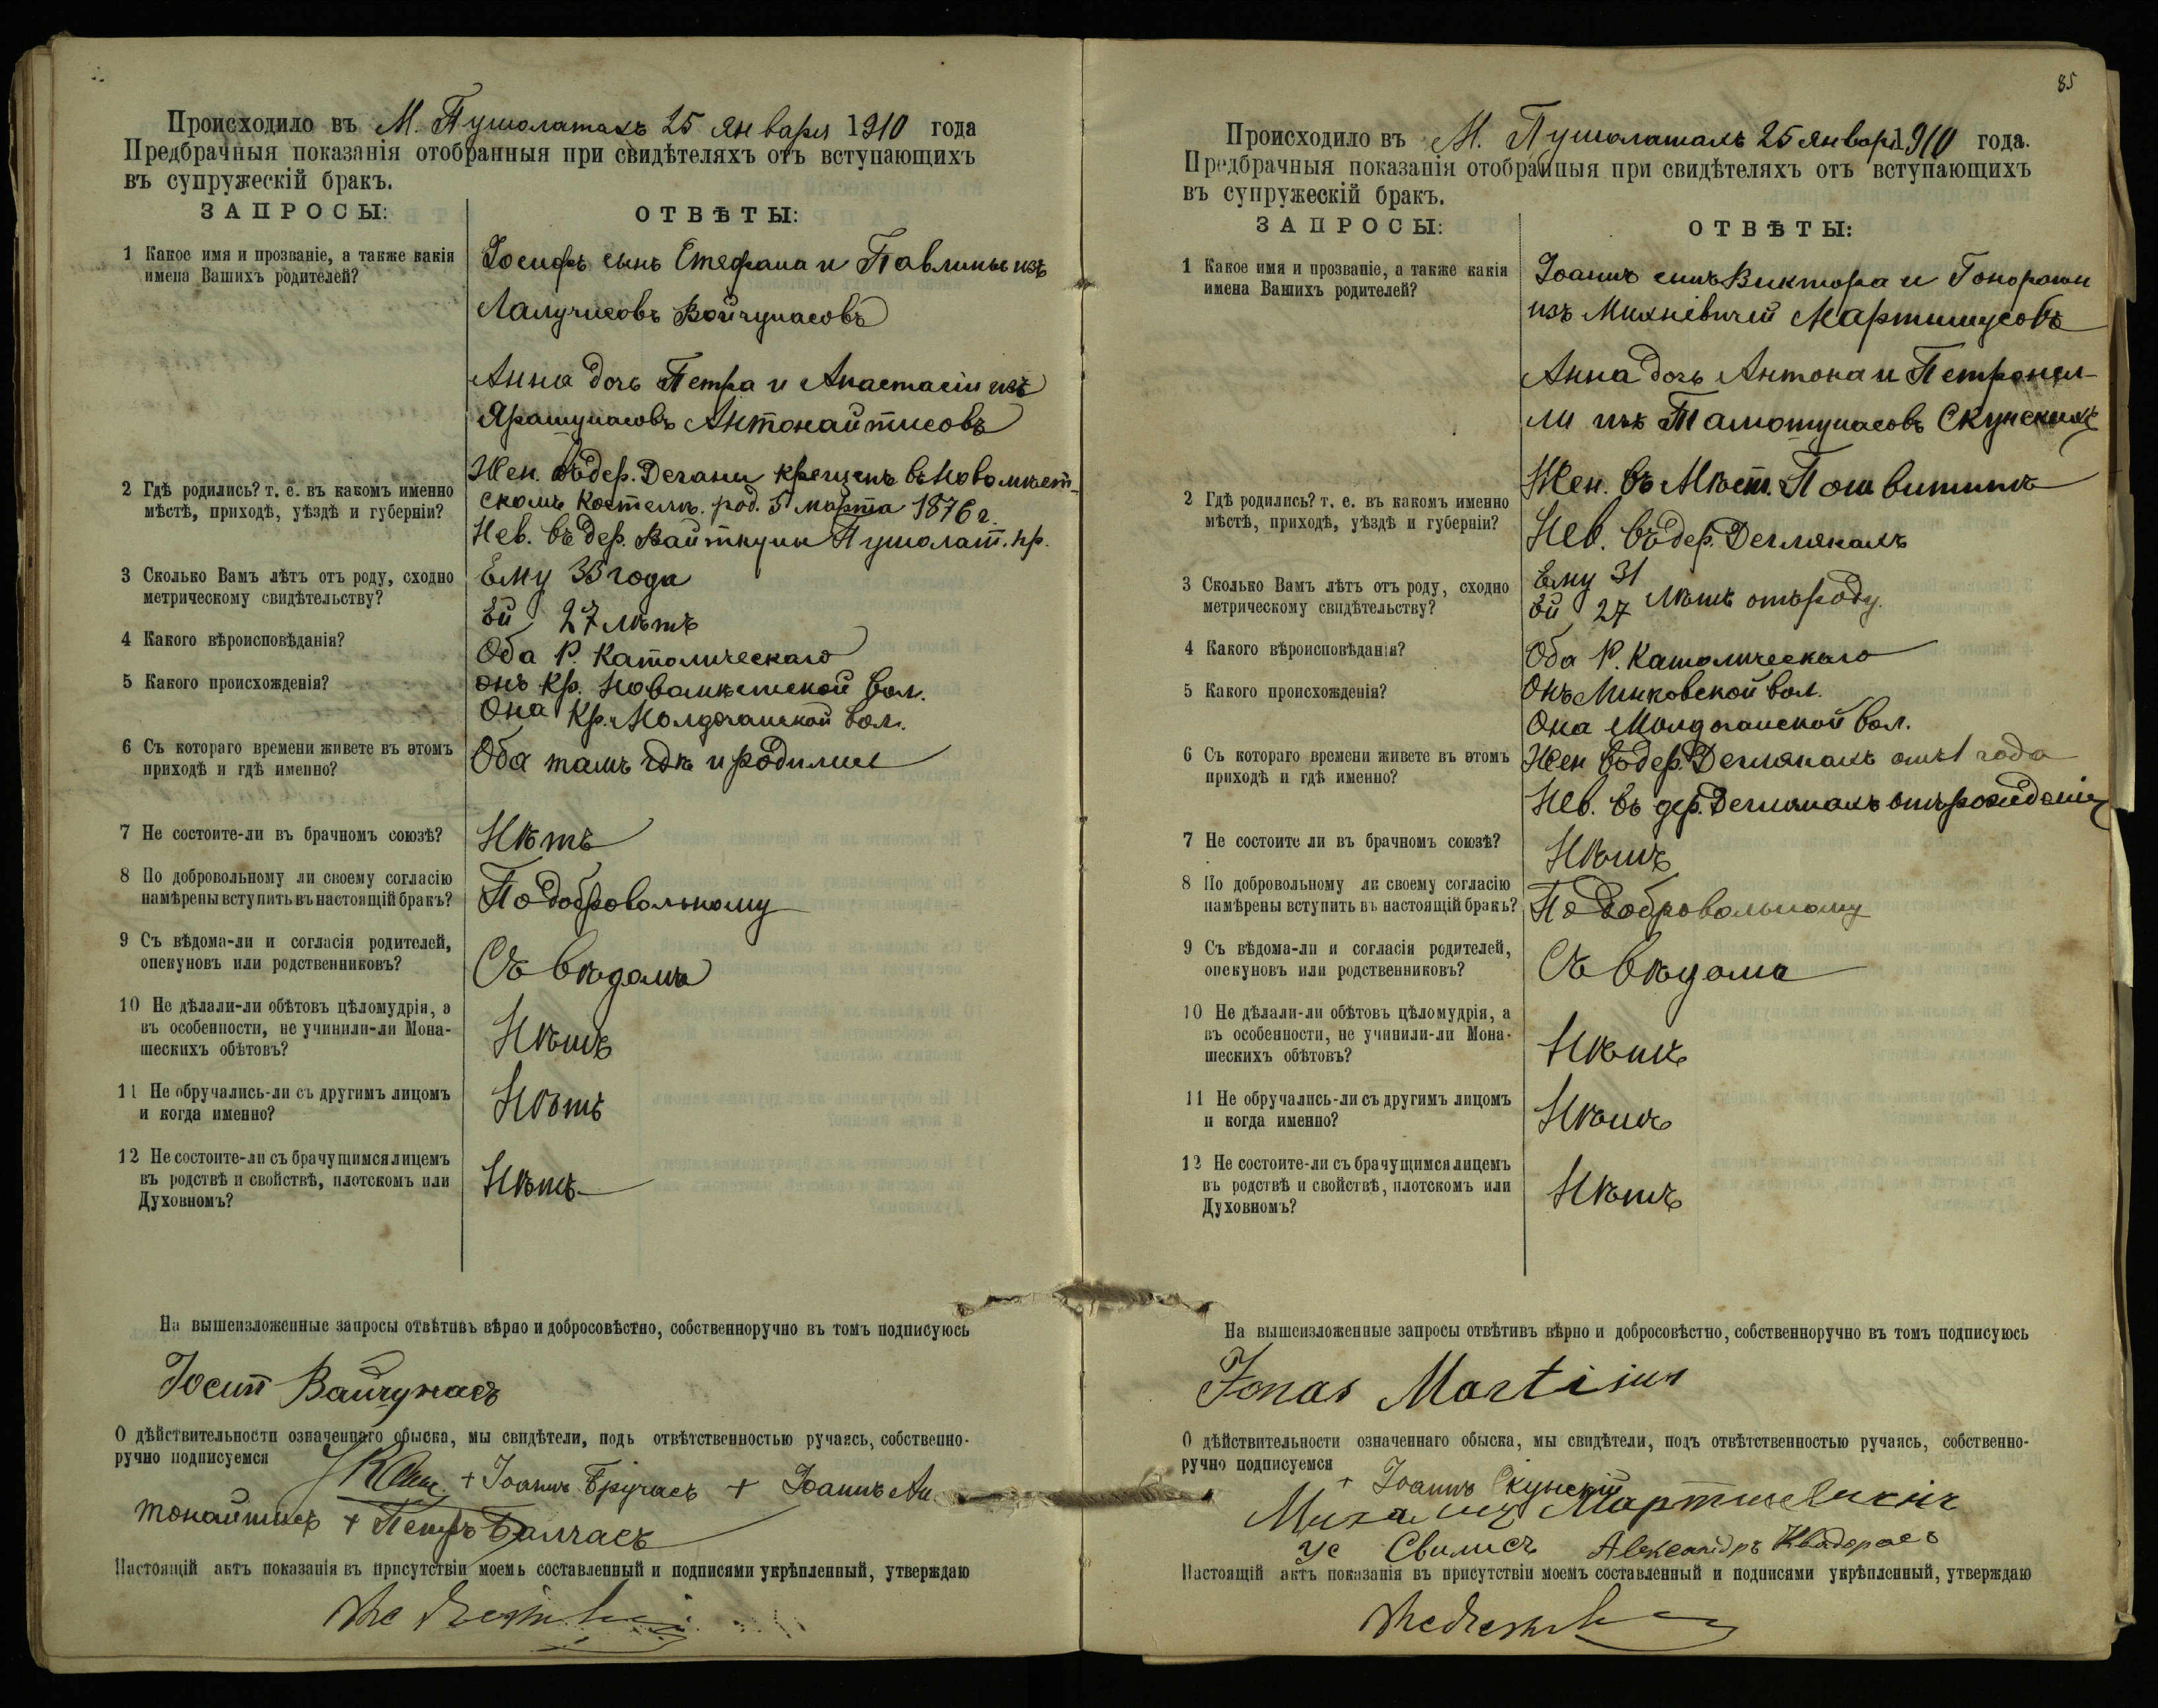 Происходило въ М. Пушолатахъ 25 января 1910 года
Предбрачныя показанія отобранныя при свидѣтеляхъ отъ вступающихъ
въ супружескій бракъ.
ЗАПРОСЫ:
ОТВѢТЫ:
1 Какое имя и прозваніе, а также какія
имена Вашихъ родителей?
Іосифъ сынъ Стефана и Павлины изъ
Войчунасовъ
Анна дочь Петра и Анастасіи изъ
Ярашунасовъ Антонайтисовъ
2 Гдѣ родились? т. е. въ какомъ именно
мѣстѣ, приходѣ, уѣздѣ и губерніи?
Жен. въ дер. Дечаны крещенъ въ Новомѣст-
скомъ костелѣ. род. 5 марта 1876 г.
Нев. въ дер. Вайткуны Пушолат. пр.
3 Сколько Вамъ лѣтъ отъ роду, сходно
метрическому свидѣтельству?
Ему 33 года
Ей 27 лѣтъ
4 Какого вѣроисповѣданія?
Оба Р. Католическаго
5 Какого происхожденія?
Онъ кр. Новомѣстской вол.
Она кр. вол.
6 Съ котораго времени живете въ этомъ
приходѣ и гдѣ именно?
Оба тамъ гдѣ и родились
7 Не состоите-ли въ брачномъ союзѣ?
Нѣтъ
8 По добровольному ли своему согласію
намѣрены вступить въ настоящій бракъ?
По добровольному
9 Съ вѣдома-ли и согласія родителей,
опекуновъ или родственниковъ?
Съ вѣдома
10 Не дѣлали-ли обѣтовъ цѣломудрія, а
въ особенности, не учинили-ли Мона-
шескихъ обѣтовъ?
Нѣтъ
11 Не обручались-ли съ другимъ лицомъ
и когда именно?
Нѣтъ
12 Не состоите-ли съ брачущимся лицемъ
въ родствѣ и свойствѣ, плотскомъ или
Духовномъ?
Нѣтъ
На вышеизложенные запросы отвѣтивъ вѣрно и добросовѣстно, собственноручно въ томъ подписуюсь
Іосип Вайчунасъ
О дѣйствительности означеннаго обыска, мы свидѣтели, подъ отвѣтственностью ручаясь, собственно-
ручно подписуемся
+ Іоаннъ Бричасъ + Іоаннъ Ан
тонайтисъ + Петръ Балчасъ
Настоящій актъ показанія въ присутствіи моемъ составленный и подписями укрѣпленный, утверждаю
85
Происходило въ М. Пушолатахъ 25 января 1910 года.
Предбрачныя показанія отобранныя при свидѣтеляхъ отъ вступающихъ
въ супружескій бракъ.
ЗАПРОСЫ:
ОТВѢТЫ:
1 Какое имя и прозваніе, а также какія
имена Вашихъ родителей?
Іоаннъ сынъ Виктора и Гонораты
изъ Михневичей Мартинусовъ
Анна дочь Антона и Петронел-
ли изъ Тамошунасовъ Скунскихъ
2 Гдѣ родились? т. е. въ какомъ именно
мѣстѣ, приходѣ, уѣздѣ и губерніи?
Жен. въ Мѣст. Пошвитинѣ
Нев. въ дер. Деглянахъ
3 Сколько Вамъ лѣтъ отъ роду, сходно
метрическому свидѣтельству?
Ему 31
Ей 27 лѣтъ отъ роду.
4 Какого вѣроисповѣданія?
Оба Р. Католическаго
5 Какого происхожденія?
Онъ Линковской вол.
Она вол.
6 Съ котораго времени живете въ этомъ
приходѣ и гдѣ именно?
Жен въ дер. Деглянахъ отъ 1 года
Нев. въ дер. Деглянахъ отъ рожденія
7 Не состоите ли въ брачномъ союзѣ?
Нѣтъ
8 По добровольному ли своему согласію
намѣрены вступить въ настоящій бракъ?
По добровольному
9 Съ вѣдома-ли и согласія родителей,
опекуновъ или родственниковъ?
Съ вѣдома
10 Не дѣлали-ли обѣтовъ цѣломудрія, а
въ особенности, не учинили-ли Мона-
шескихъ обѣтовъ?
Нѣтъ
11 Не обручались-ли съ другимъ лицомъ
и когда именно?
Нѣтъ
12 Не состоите-ли съ брачущимся лицемъ
въ родствѣ и свойствѣ, плотскомъ или
Духовномъ?
Нѣтъ
На вышеизложенные запросы отвѣтивъ вѣрно и добросовѣстно, собственноручно въ томъ подписуюсь
Jonas Martisius
О дѣйствительности означеннаго обыска, мы свидѣтели, подъ отвѣтственностью ручаясь, собственно-
ручно подписуемся
+ Іоаннъ Скунскій
Свилисъ Александръ
Настоящій актъ показанія въ присутствіи моемъ составленный и подписями укрѣпленный, утверждаю